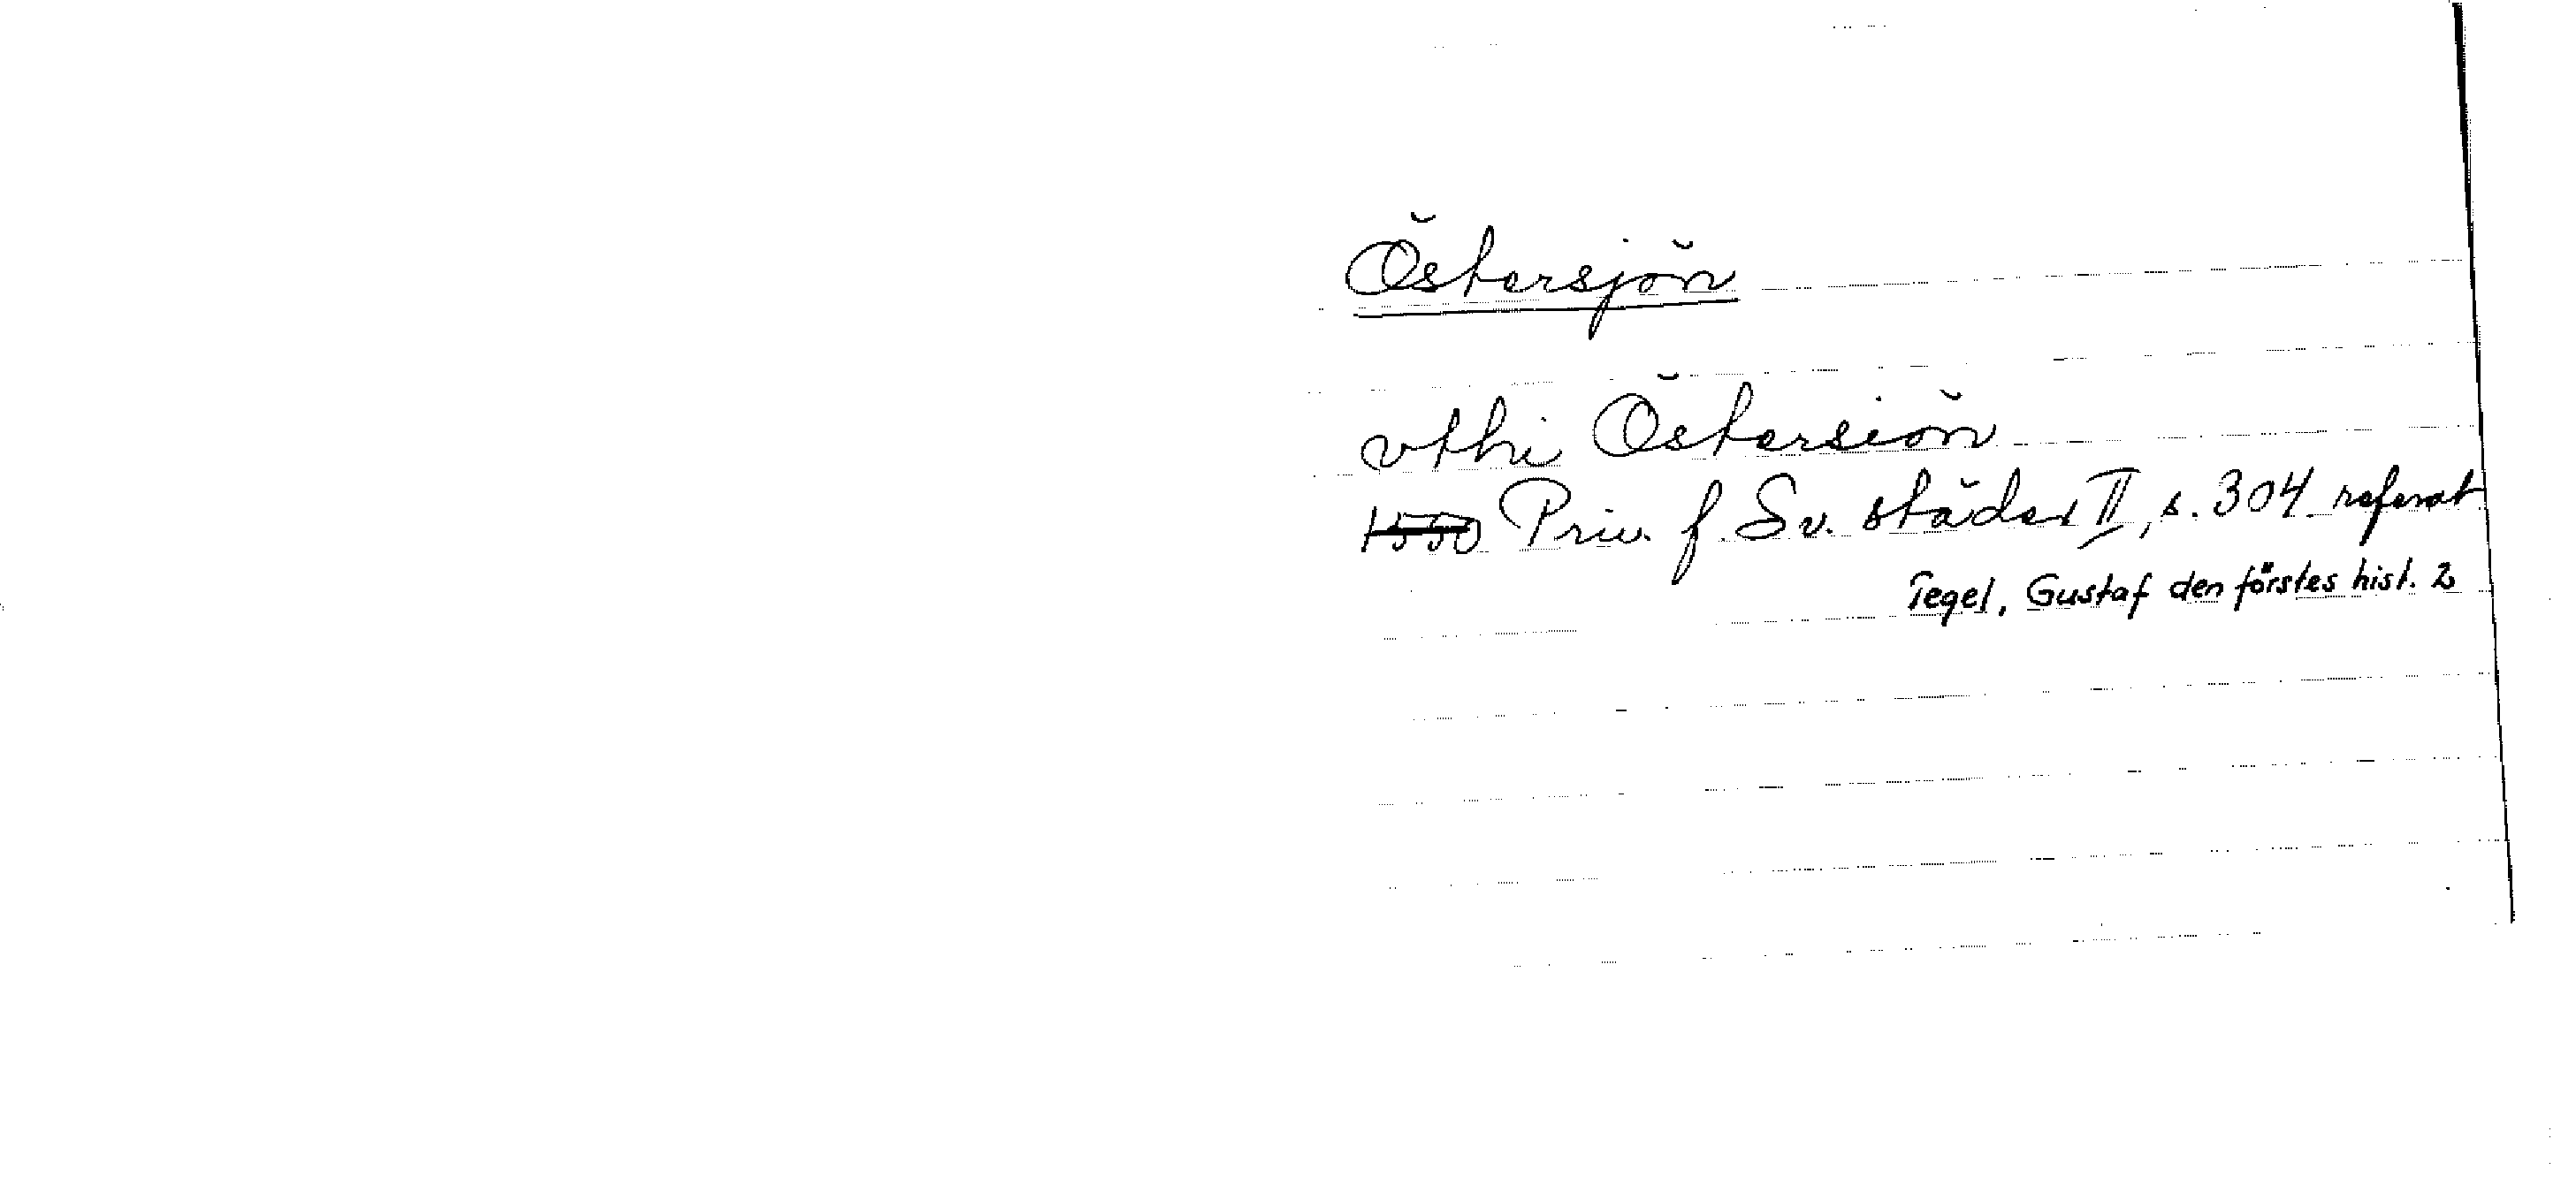 Östersjön
vthi Östersiön
1550 Priv. f. Sv. städer II, s. 304 referat
Tegel, Gustaf den förstes hist. 2